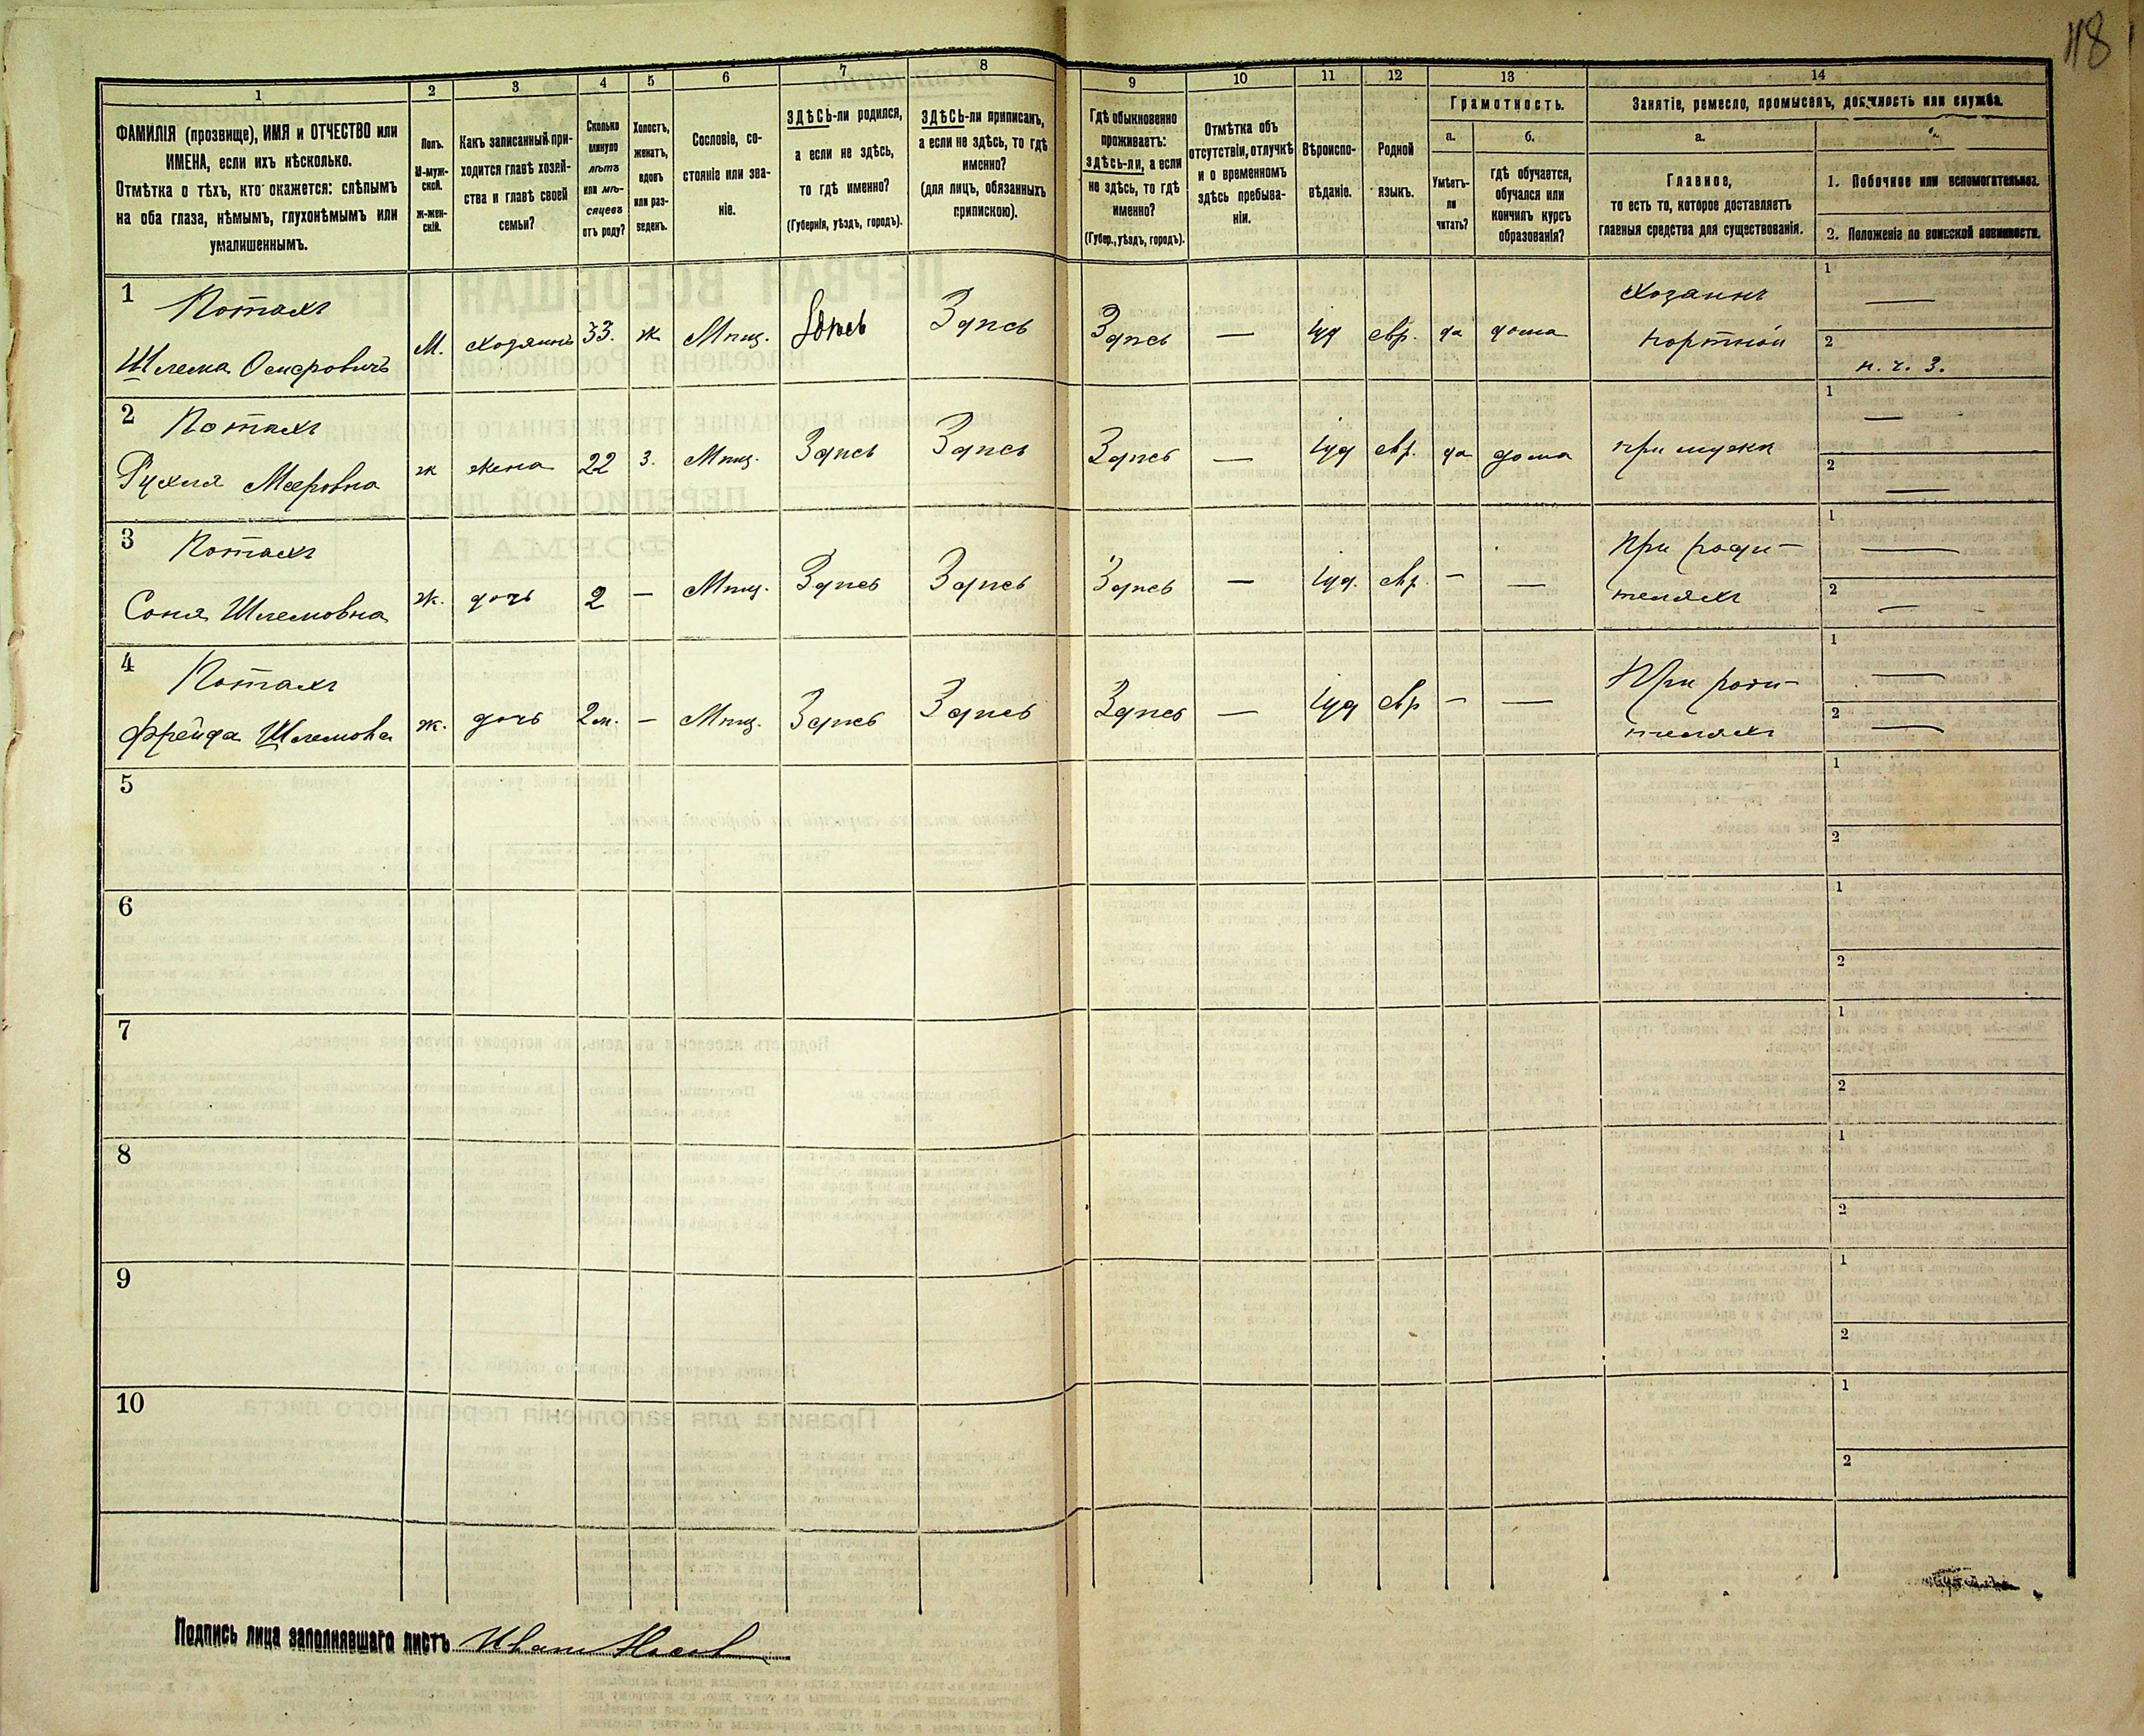 118
1 2 3 4 5 6 7 8 9 10 11 12 13 14
ФАМИЛІЯ (прозвище), ИМЯ и ОТЧЕСТВО или
ИМЕНА, если ихъ нѣсколько.
Отмѣтка о тѣхъ, кто окажется: слѣпымъ
на оба глаза, нѣмымъ, глухонѣмымъ или
умалишеннымъ.
Полъ.
М-муж-
ской.
ж-жен-
скій.
Какъ записанный при-
ходится главѣ хозяй-
ства и главѣ своей
семьи?
Сколько
минуло
лѣтъ
или мѣ-
сяцевъ
отъ роду?
Холостъ,
женатъ,
вдовъ
или раз-
веденъ.
Сословіе, со-
стояніе или зва-
ніе.
ЗДѢСЬ-ли родился,
а если не здѣсь,
то гдѣ именно?
(Губернія, уѣздъ, городъ).
ЗДѢСЬ-ли приписанъ,
а если не здѣсь, то гдѣ
именно?
(для лицъ, обязанныхъ
припискою).
Гдѣ обыкновенно
проживаетъ:
здѣсь-ли, а если
не здѣсь, то гдѣ
именно?
(Губер., уѣздъ, городъ).
Отмѣтка объ
отсутствіи, отлучкѣ
и о временномъ
здѣсь пребыва-
ніи.
Вѣроиспо-
вѣданіе.
Родной
языкъ.
Грамотность.
а. б.
Умѣетъ-
ли
читать?
гдѣ обучается,
обучался или
кончилъ курсъ
образованія?
Занятіе, ремесло, промыселъ, должность или служба.
а.
Главное,
то есть то, которое доставляетъ
главныя средства для существованія.
1. Побочное или вспомогательное.
2. Положеніе по воинской повинности.
1 Потахъ
Шлема Осиеровичъ М. хозяинъ 33. ж Мѣщ. Здѣсь Здѣсь Здѣсь — Іуд евр. да дома
Хозаинъ
портной
1 —
2 н. ч. з.
2 Потахъ
Рухля Мееровна ж жена 22 з. Мѣщ. Здѣсь Здѣсь Здѣсь — Іуд евр. да дома при мужѣ
1 —
2 —
3 Потахъ
Соня Шлемовна ж. дочь 2 — Мѣщ. Здѣсь Здѣсь Здѣсь — Іуд. евр. — —
При роди-
теляхъ
1 —
2 —
4 Потахъ
Фрейда Шлемовна ж. дочь 2 м. — Мѣщ. Здѣсь Здѣсь Здѣсь — Іуд евр — —
При роди-
теляхъ
1 —
2 —
5 1
2
6 1
2
7 1
2
8 1
2
9 1
2
10 1
2
Подпись лица заполнявшаго листъ Иванъ Носов